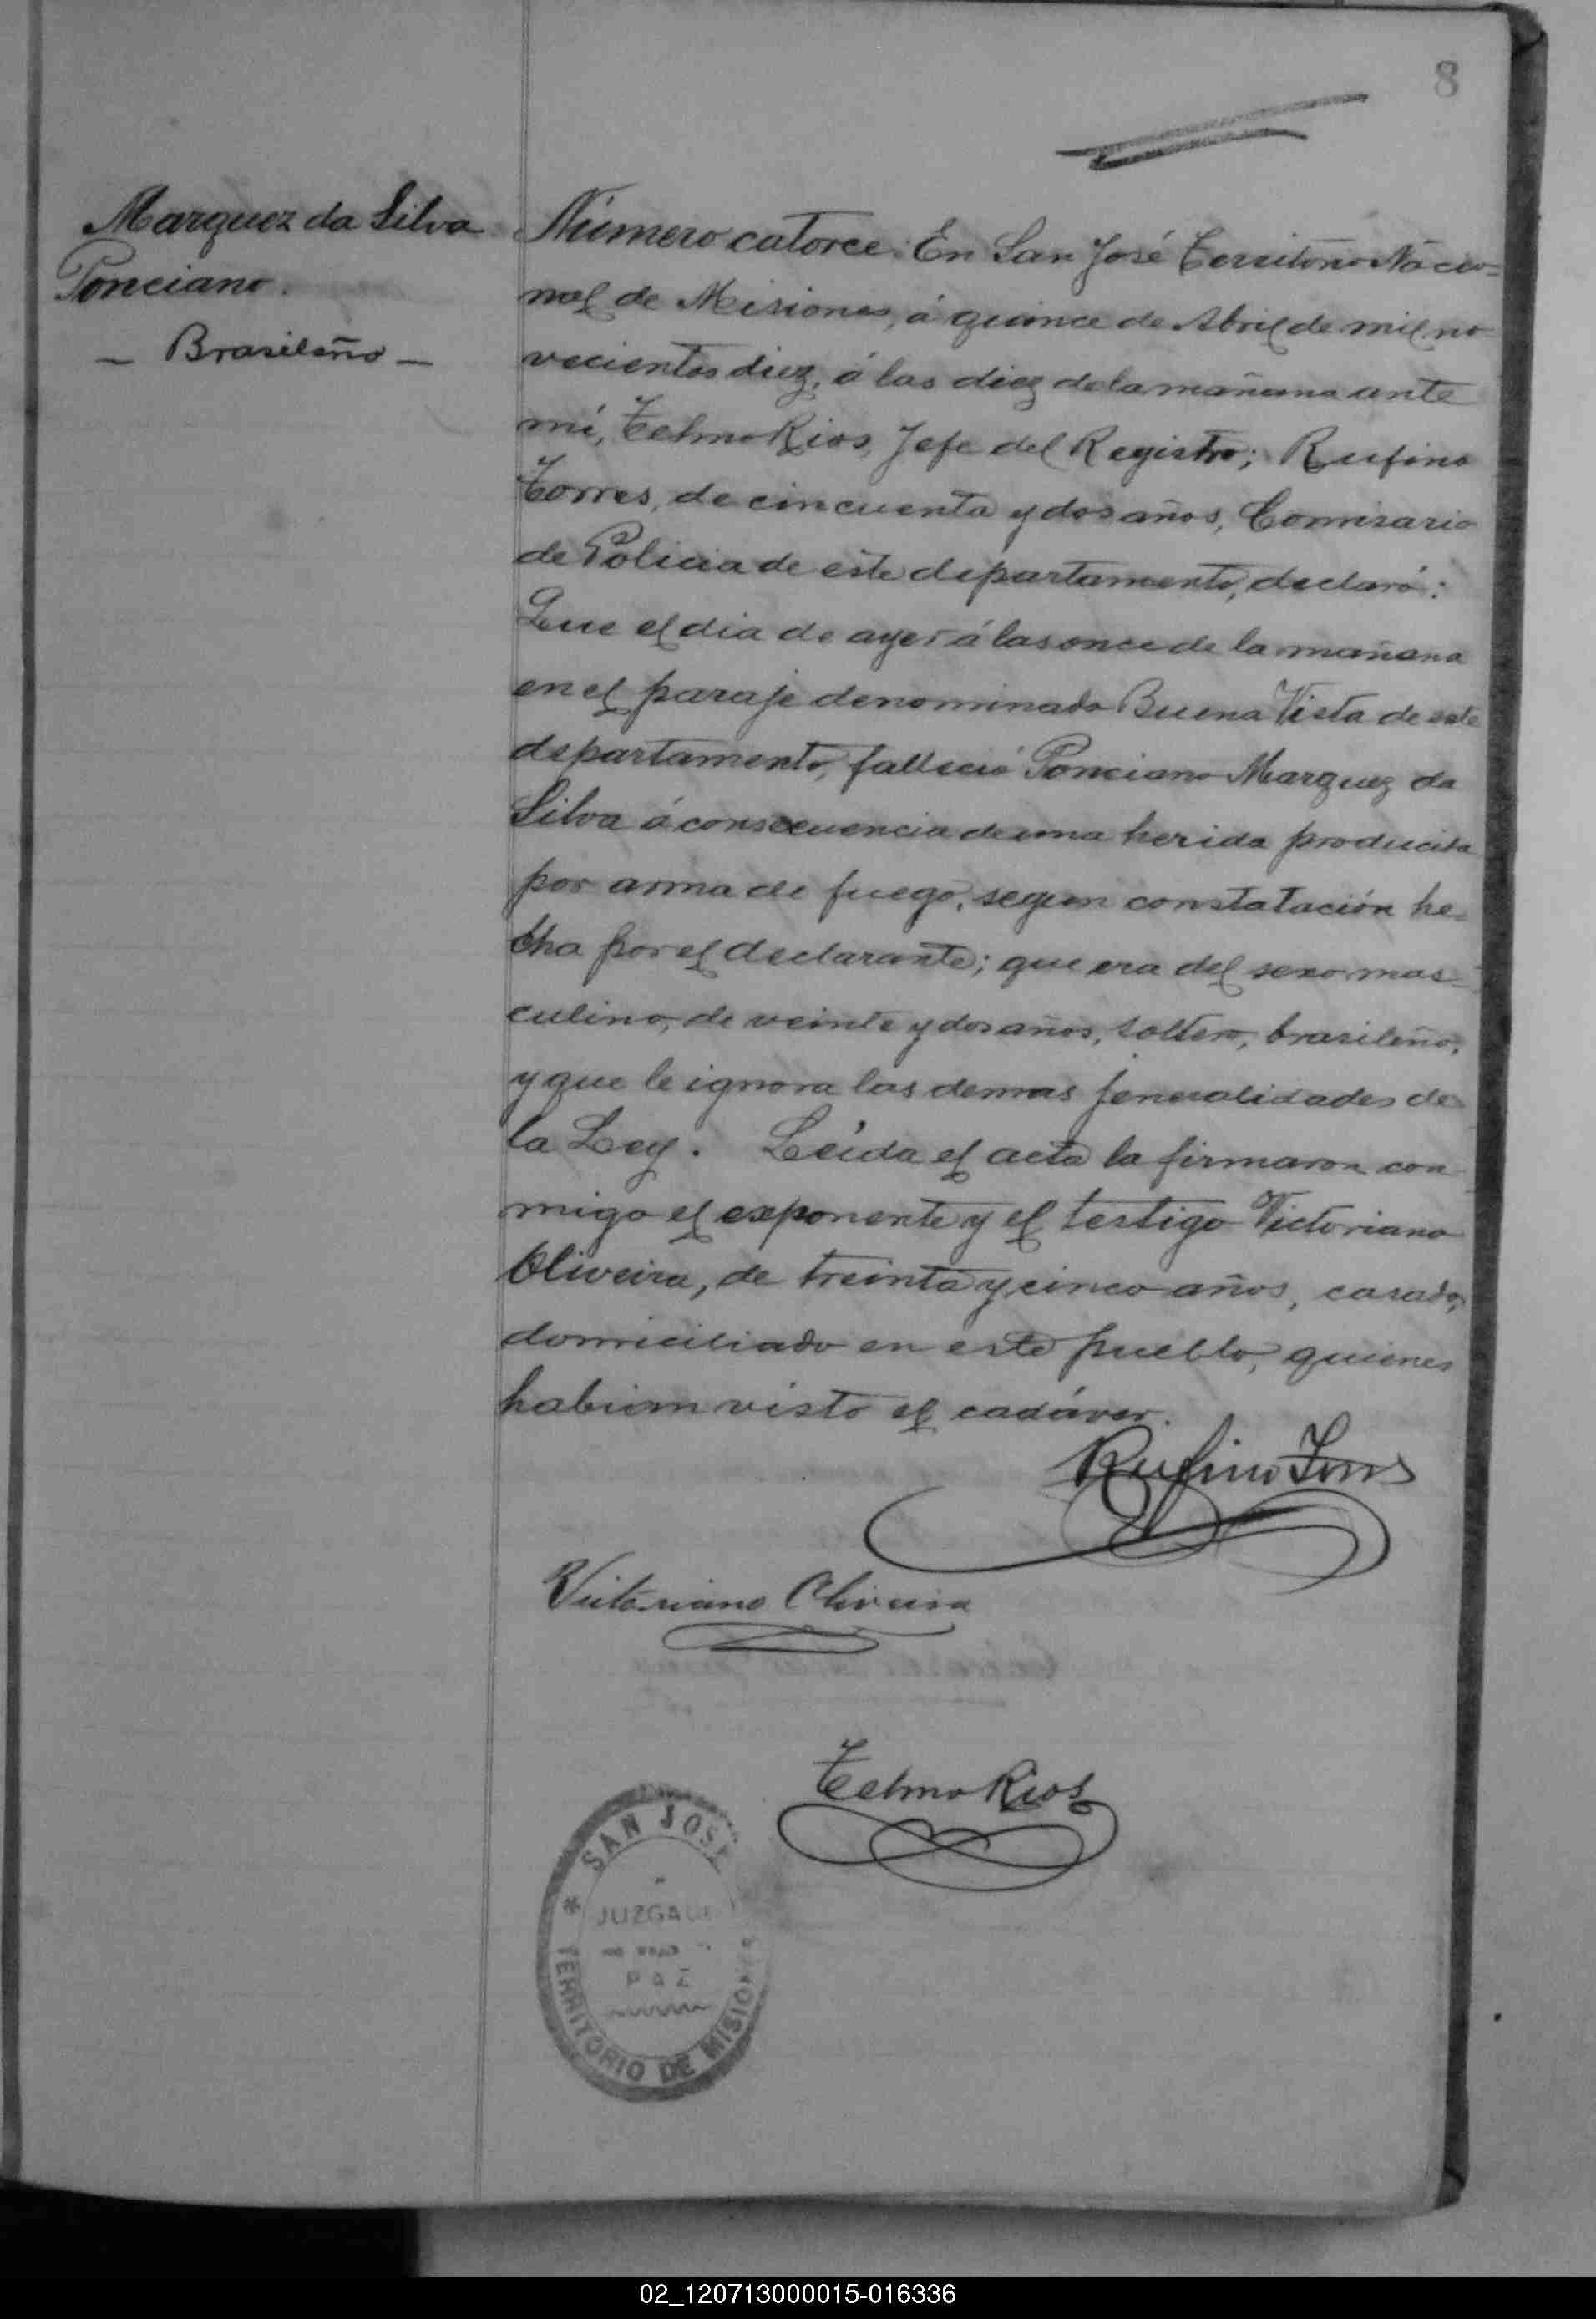 8
Marquez da Silva
Ponciano.
— Brasileño —
Número catorce: En San José Territorio Nacio=
nal de Misiones, á quince de Abril de mil no-
vecientos diez, á las diez de la mañana ante
mí, Telmo Rios, Jefe del Registro; Rufino
Torres, de cincuenta y dos años, Comisario
de Policia de este departamento, declaró:
Que el dia de ayer á las once de la mañana
en el paraje denominado Buena Vista de este
departamento, falleció Ponciano Marquez da
Silva á consecuencia de una herida producida
por arma de fuego, segun constatación he=
cha por el declarante; que era del sexo mas=
culino, de veinte y dos años, soltero, brasileño,
y que le ignora las demas jeneralidades de
la Ley. Leída el acta la firmaron con
migo el exponente y el testigo Victoriano
Oliveira, de treinta y cinco años, casado,
domiciliado en este pueblo, quienes
habian visto el cadáver.
Rufino Torres
Victoriano Oliveira
Telmo Rios
SAN JOSE
JUZGADO
PAZ
TERRITORIO DE MISIONES
02_120713000015-016336